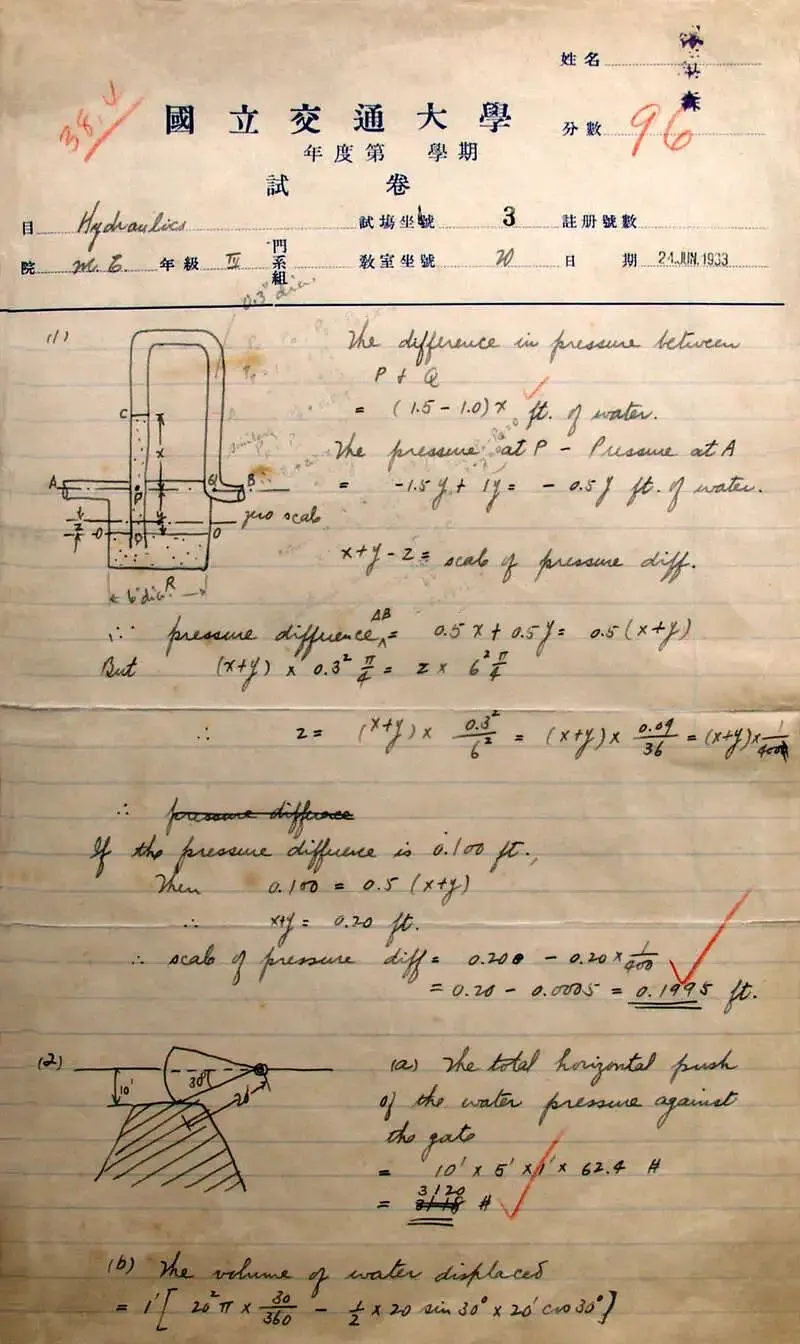 姓名
38.5
國立交通大學
分數 96
年度第 學期
試 卷
目 Hydraulics 試場坐號 3 註册號數
院 M.E. 年級 IV 門系組 教室坐號 20 日期 24.JUN.1933
0.3" dia.
(1) The difference in pressure between
P & Q
= (1.5 - 1.0)x ft. of water.
The pressure at P - Pressure at A
= -1.5y + 1y = - 0.5y ft. of water.
C
x
A P Q B
zero scale
z O O
D
R
6" dia.
x+y-z = scale of pressure diff.
∴ pressure difference AB = 0.5x + 0.5y = 0.5(x+y)
But (x+y) x 0.3² π/4 = z x 6² π/4
∴ z = (x+y) x 0.3²/6² = (x+y) x 0.09/36 = (x+y) x 1/400
∴ pressure difference
If the pressure difference is 0.100 ft.,
Then 0.100 = 0.5 (x+y)
∴ x+y = 0.20 ft.
∴ scale of pressure diff = 0.200 - 0.20 x 1/400
= 0.20 - 0.0005 = 0.1995 ft.
(2) 10' 30° 20'
(a) The total horizontal push
of the water pressure against
the gate
= 10' x 5' x 1' x 62.4 #
= 3120 #
(b) The volume of water displaced
= 1' [ 20² π x 30/360 - 1/2 x 20 sin 30° x 20' cos 30° ]